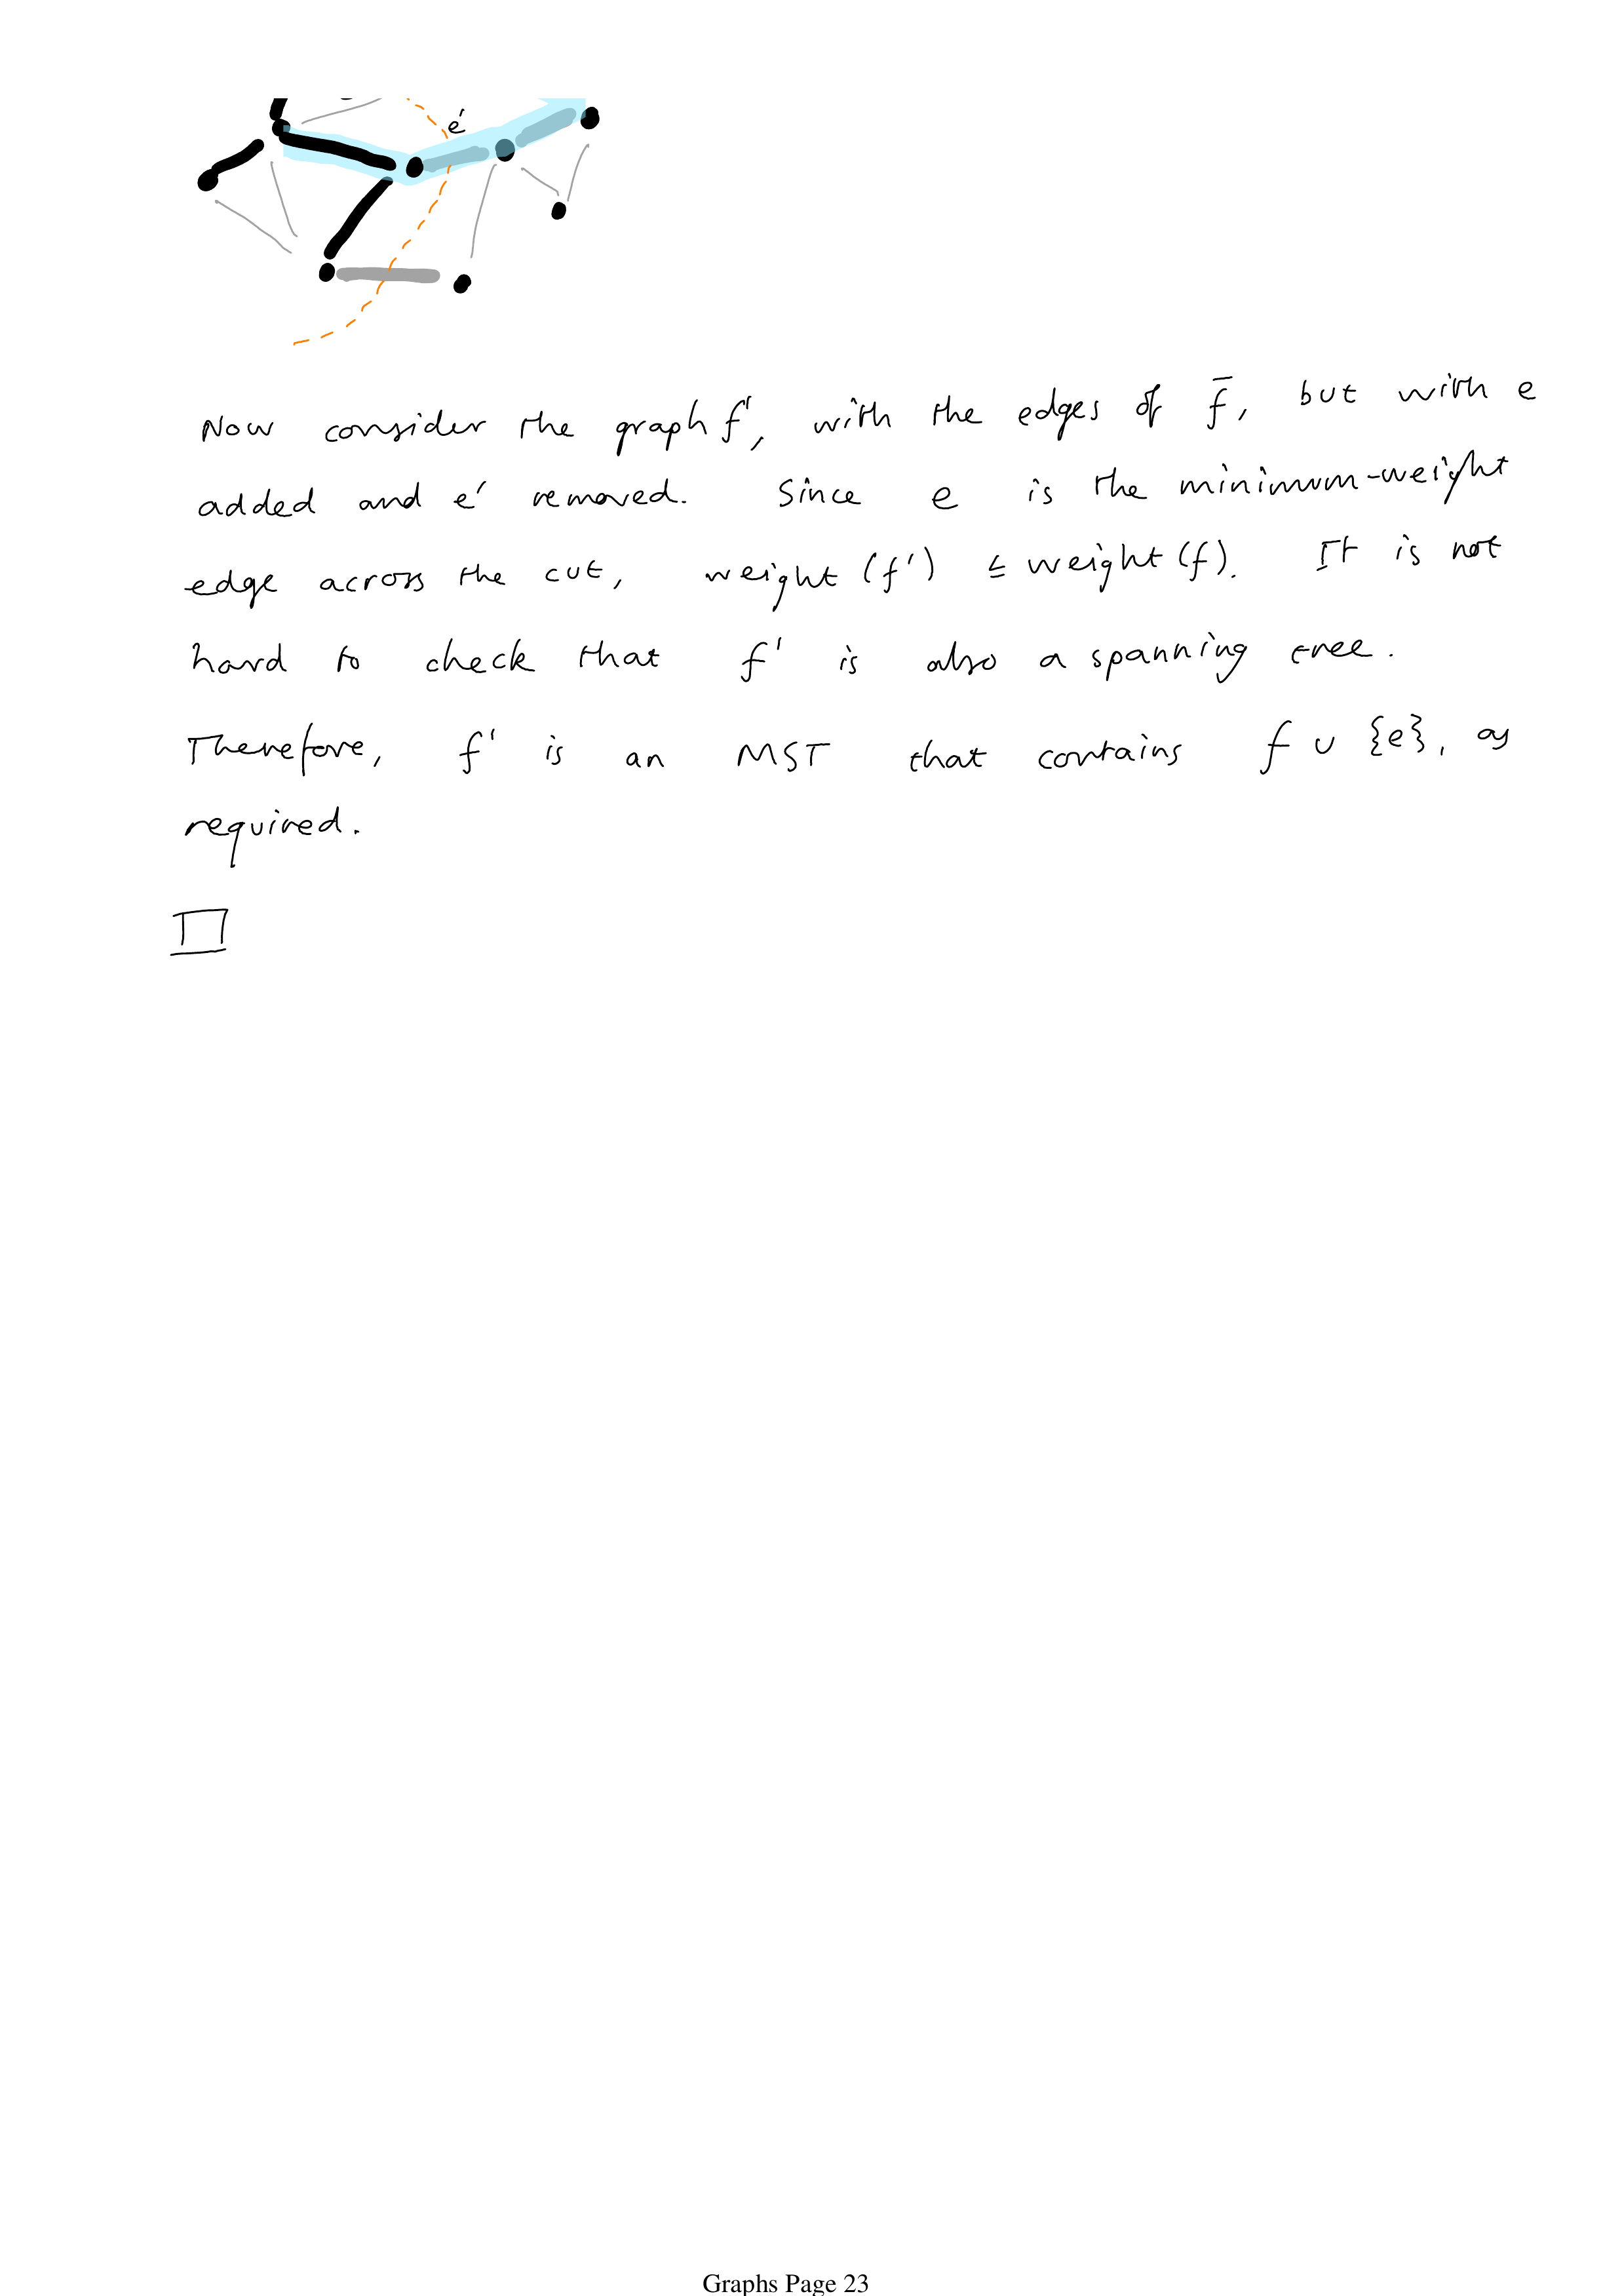 e'
Now consider the graph f', with the edges of f̄, but with e
added and e' removed. Since e is the minimum-weight
edge across the cut, weight (f') ≤ weight (f). It is not
hard to check that f' is also a spanning tree.
Therefore, f' is an MST that contains f ∪ {e}, as
required.
□
Graphs Page 23